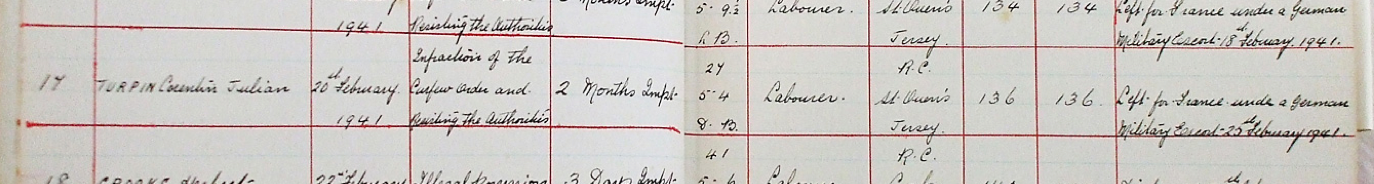 5-9½ Labourer. St. Ouen's 134 134 Left for France under a German
1941. Resisting the Authorities L.B. Jersey. Military Escort 18th February. 1941.
Infraction of the 27 R.C.
17 TURPIN Corentin Julian 20th February. Curfew Order and 2 Months Impt. 5-4 Labourer. St. Ouen's 136 136. Left for France under a German
1941. Resisting the Authorities D.B. Jersey. Military Escort 25th February 1941.
41 R.C.
18 22nd February Illegal Possession 3 Days Impt. Labourer